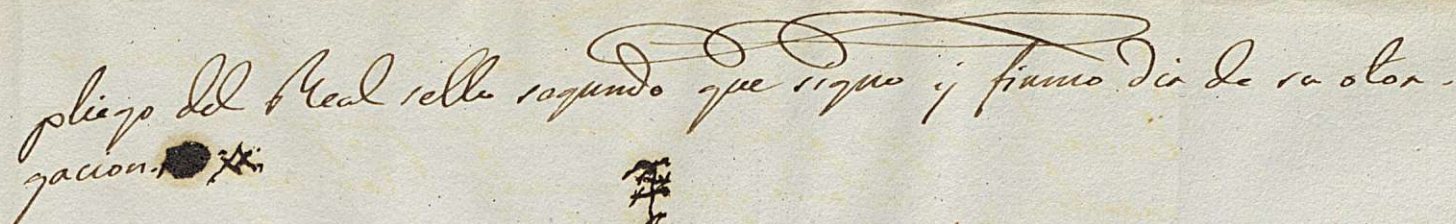 pliego del Real sello segundo que signo y firmo dia de su otor-
gacion.